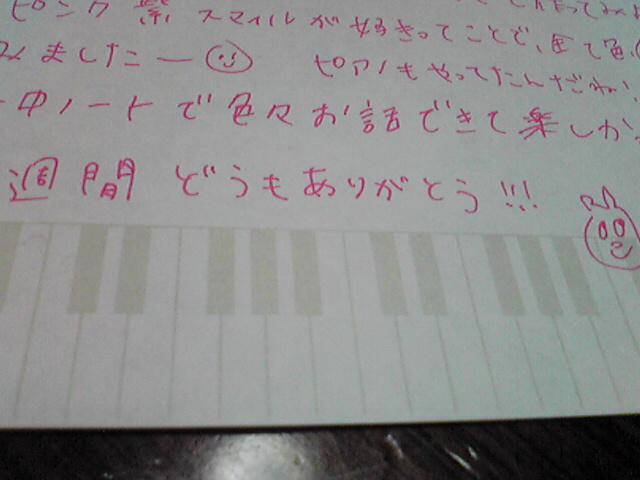 ピンク 紫 スマイルが好きってことで、全て色
みましたー ピアノもやってたんだね
中ノートで色々お話できて楽しか
週間 どうもありがとう!!!